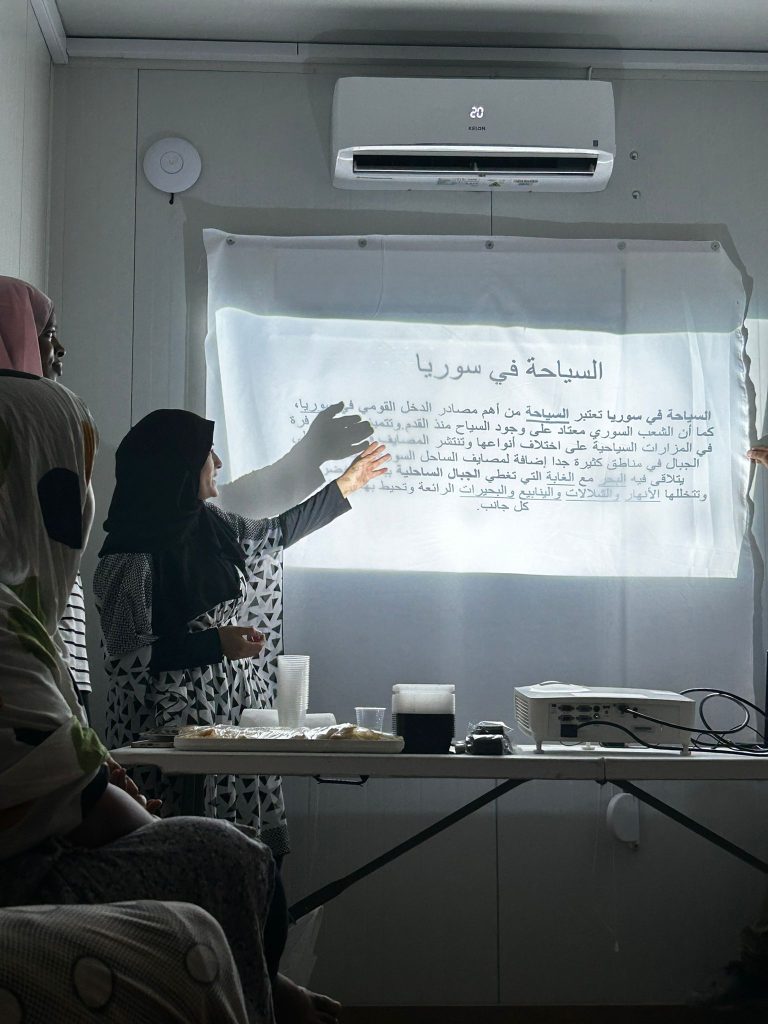 20
KELON
السياحة في سوريا
السياحة في سوريا تعتبر السياحة من أهم مصادر الدخل القومي في سوريا،
كما أن الشعب السوري معتاد على وجود السياح منذ القدم.وتتميز
في المزارات السياحية على اختلاف أنواعها وتنتشر المصايف
الجبال في مناطق كثيرة جدا إضافة لمصايف الساحل
يتلاقى فيه البحر مع الغابة التي تغطي الجبال الساحلية
وتتخللها الأنهار والشلالات والينابيع والبحيرات الرائعة وتحيط
كل جانب.